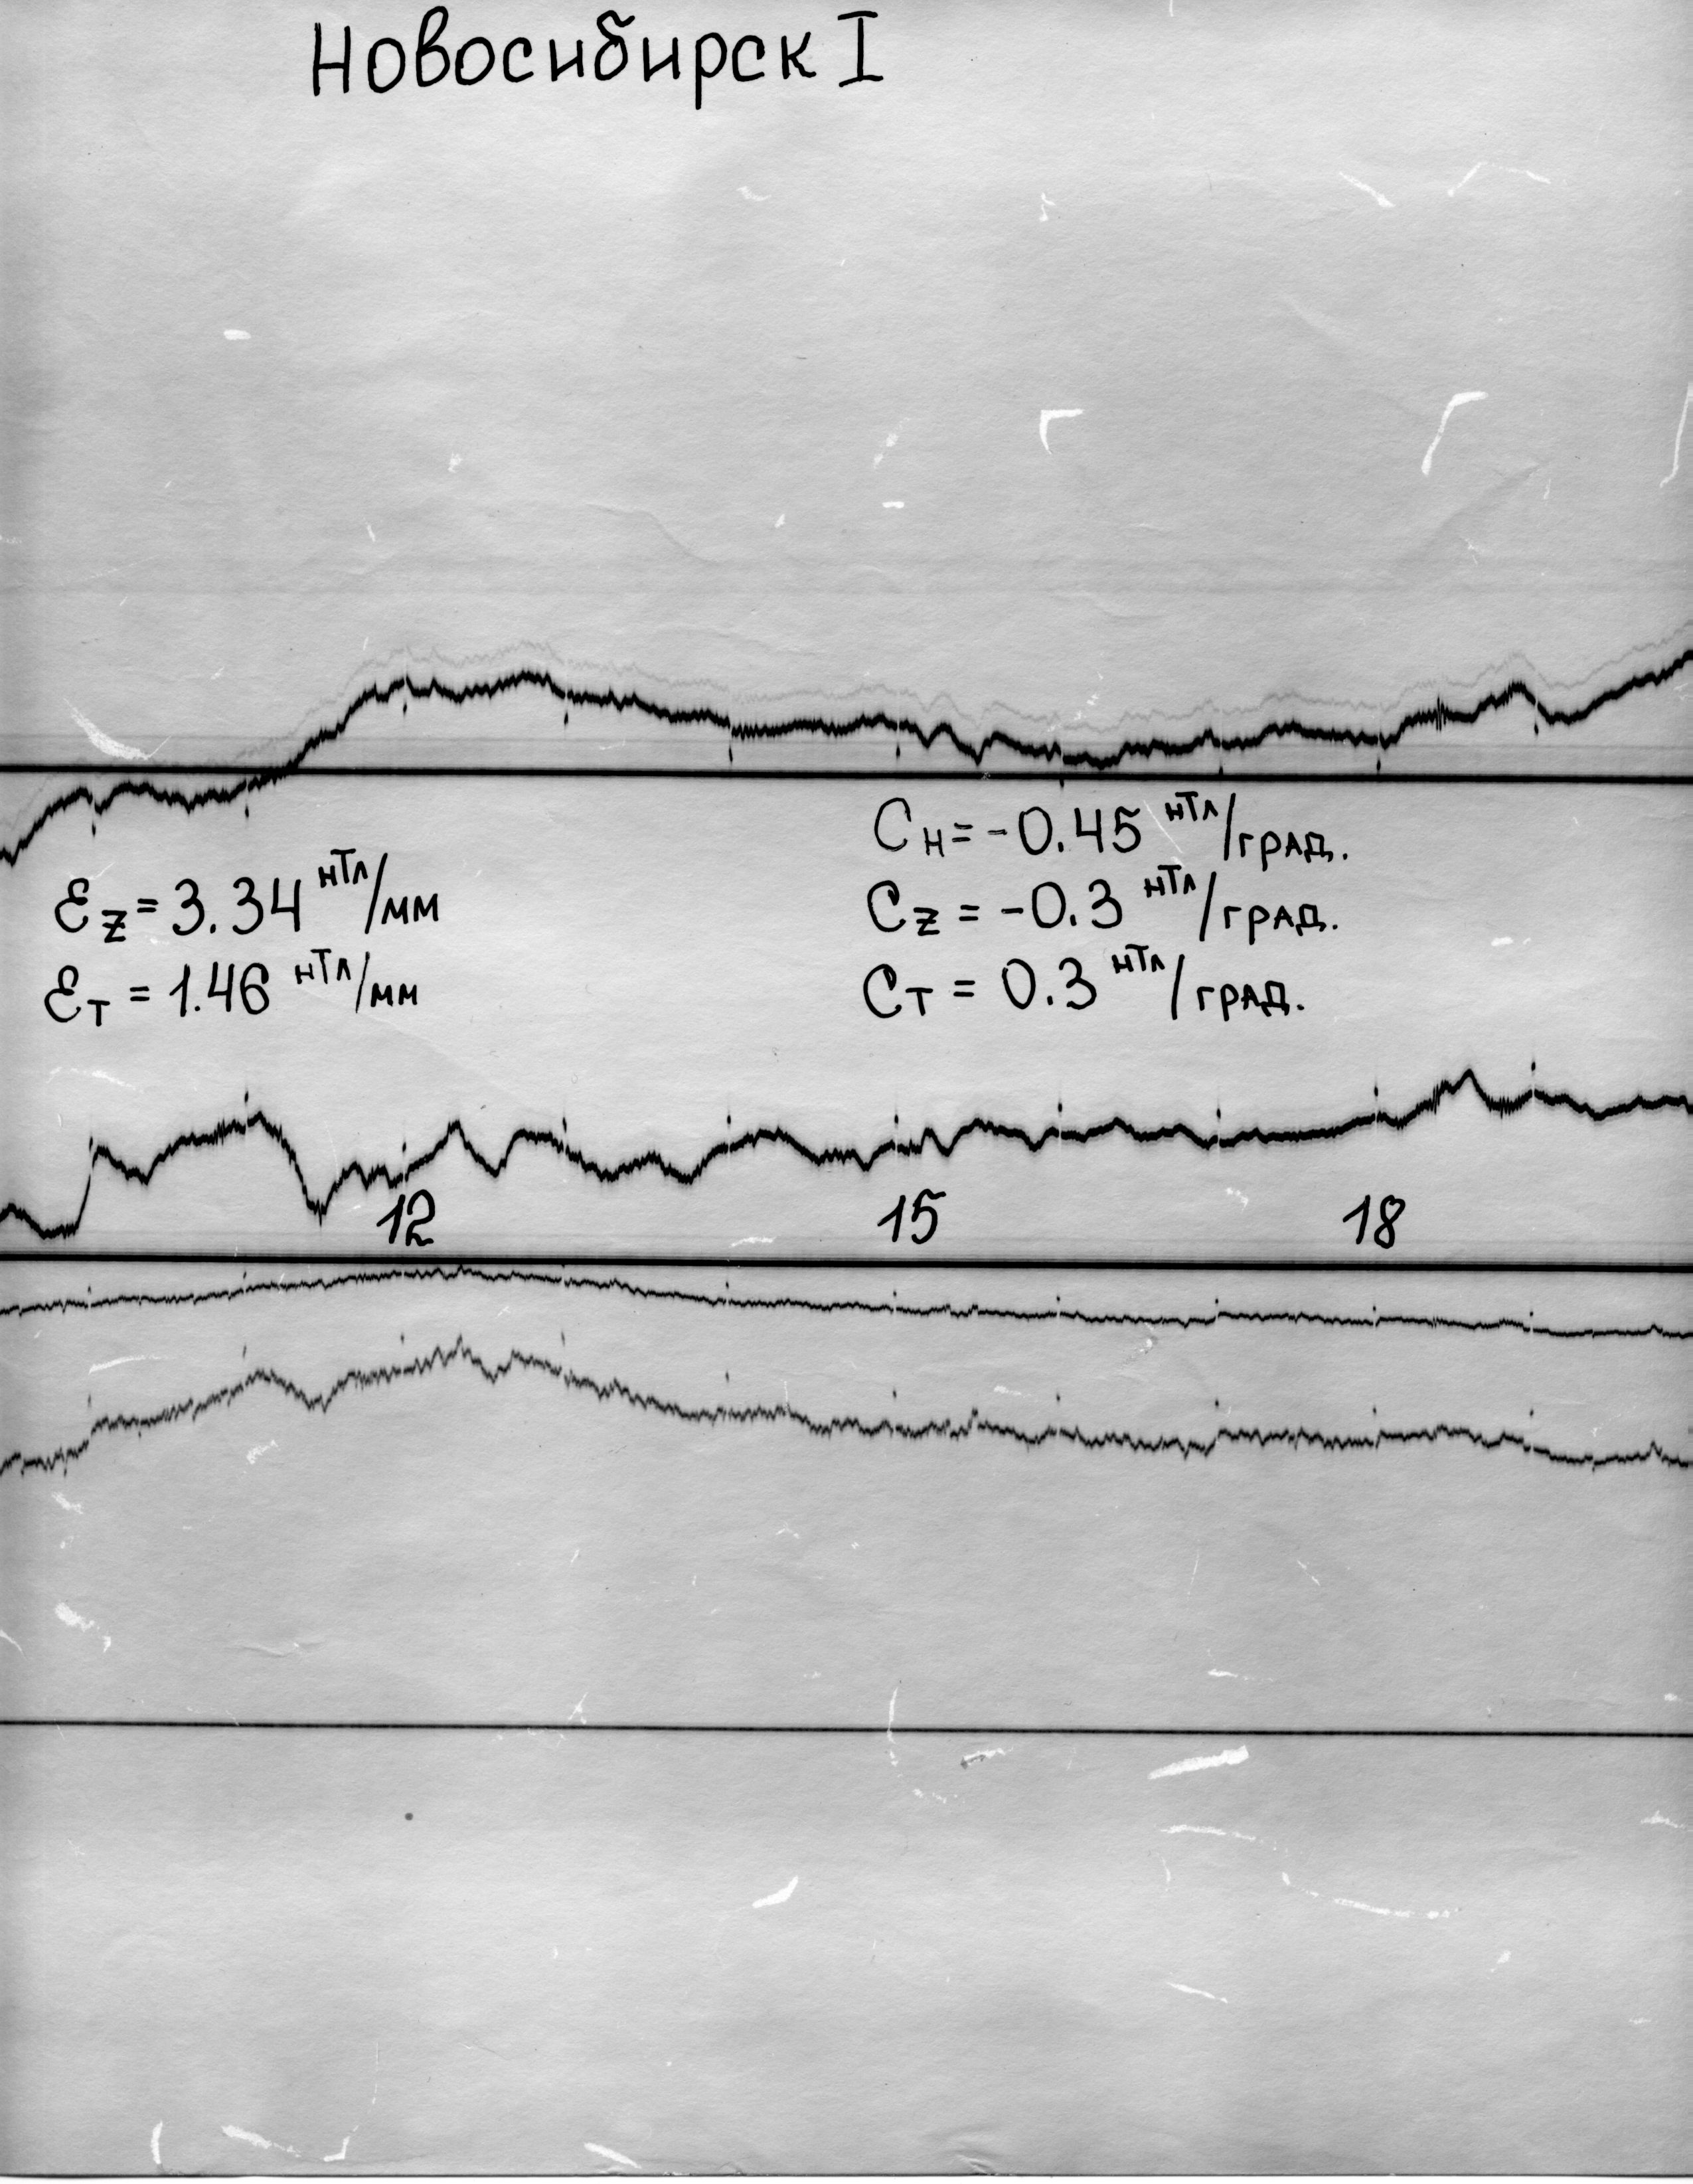 Новосибирск I
Cн = -0.45 нТл/град.
Ɛz = 3.34 нТл/мм
Cz = -0.3 нТл/град.
Ɛт = 1.46 нТл/мм
Cт = 0.3 нТл/град.
12 15 18